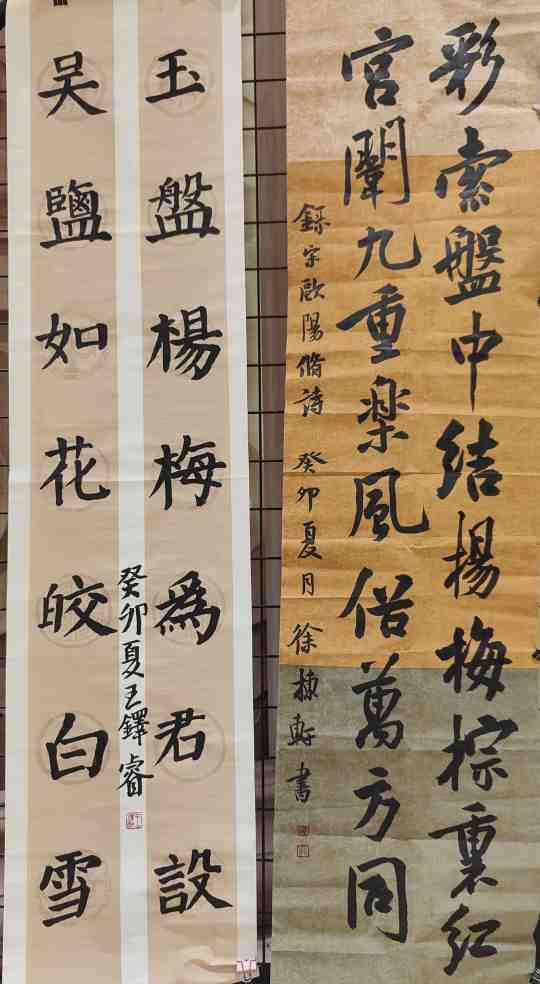 彩索盤中結楊梅棕裏紅
宮闈九重楽風俗萬方同
錄宋歐陽脩詩 癸卯夏月 徐棟軒書
玉盤楊梅爲君設
吳鹽如花皎白雪
癸卯夏王鐸睿